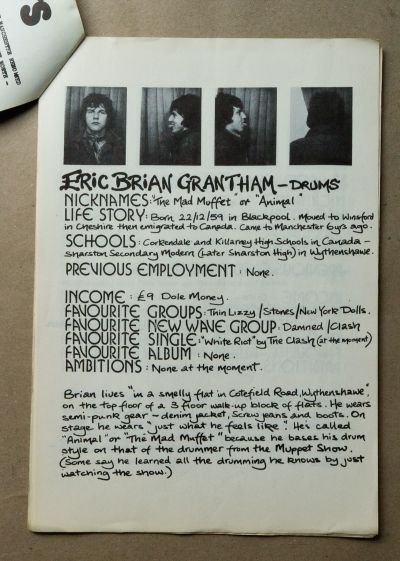 S
ERIC BRIAN GRANTHAM - DRUMS
NICKNAMES: "The Mad Muffet" or "Animal"
LIFE STORY: Born 22/12/59 in Blackpool. Moved to Winsford
in Cheshire then emigrated to Canada. Came to Manchester 6yrs ago.
SCHOOLS: Corkendale and Killarney High Schools in Canada -
Sharston Secondary Modern (Later Sharston High) in Wythenshawe.
PREVIOUS EMPLOYMENT: None.
INCOME: £9 Dole Money.
FAVOURITE GROUPS: Thin Lizzy/Stones/New York Dolls.
FAVOURITE NEW WAVE GROUP: Damned/Clash
FAVOURITE SINGLE: "White Riot" by The Clash (at the moment)
FAVOURITE ALBUM: None.
AMBITIONS: None at the moment.
Brian lives "in a smelly flat in Cotefield Road, Wythenshawe",
on the top floor of a 3 floor walk-up block of flats. He wears
semi-punk gear - denim jacket, screw jeans and boots. On
stage he wears "just what he feels like". He's called
"Animal" or "The Mad Muffet" because he bases his drum
style on that of the drummer from the Muppet Show.
(Some say he learned all the drumming he knows by just
watching the show.)